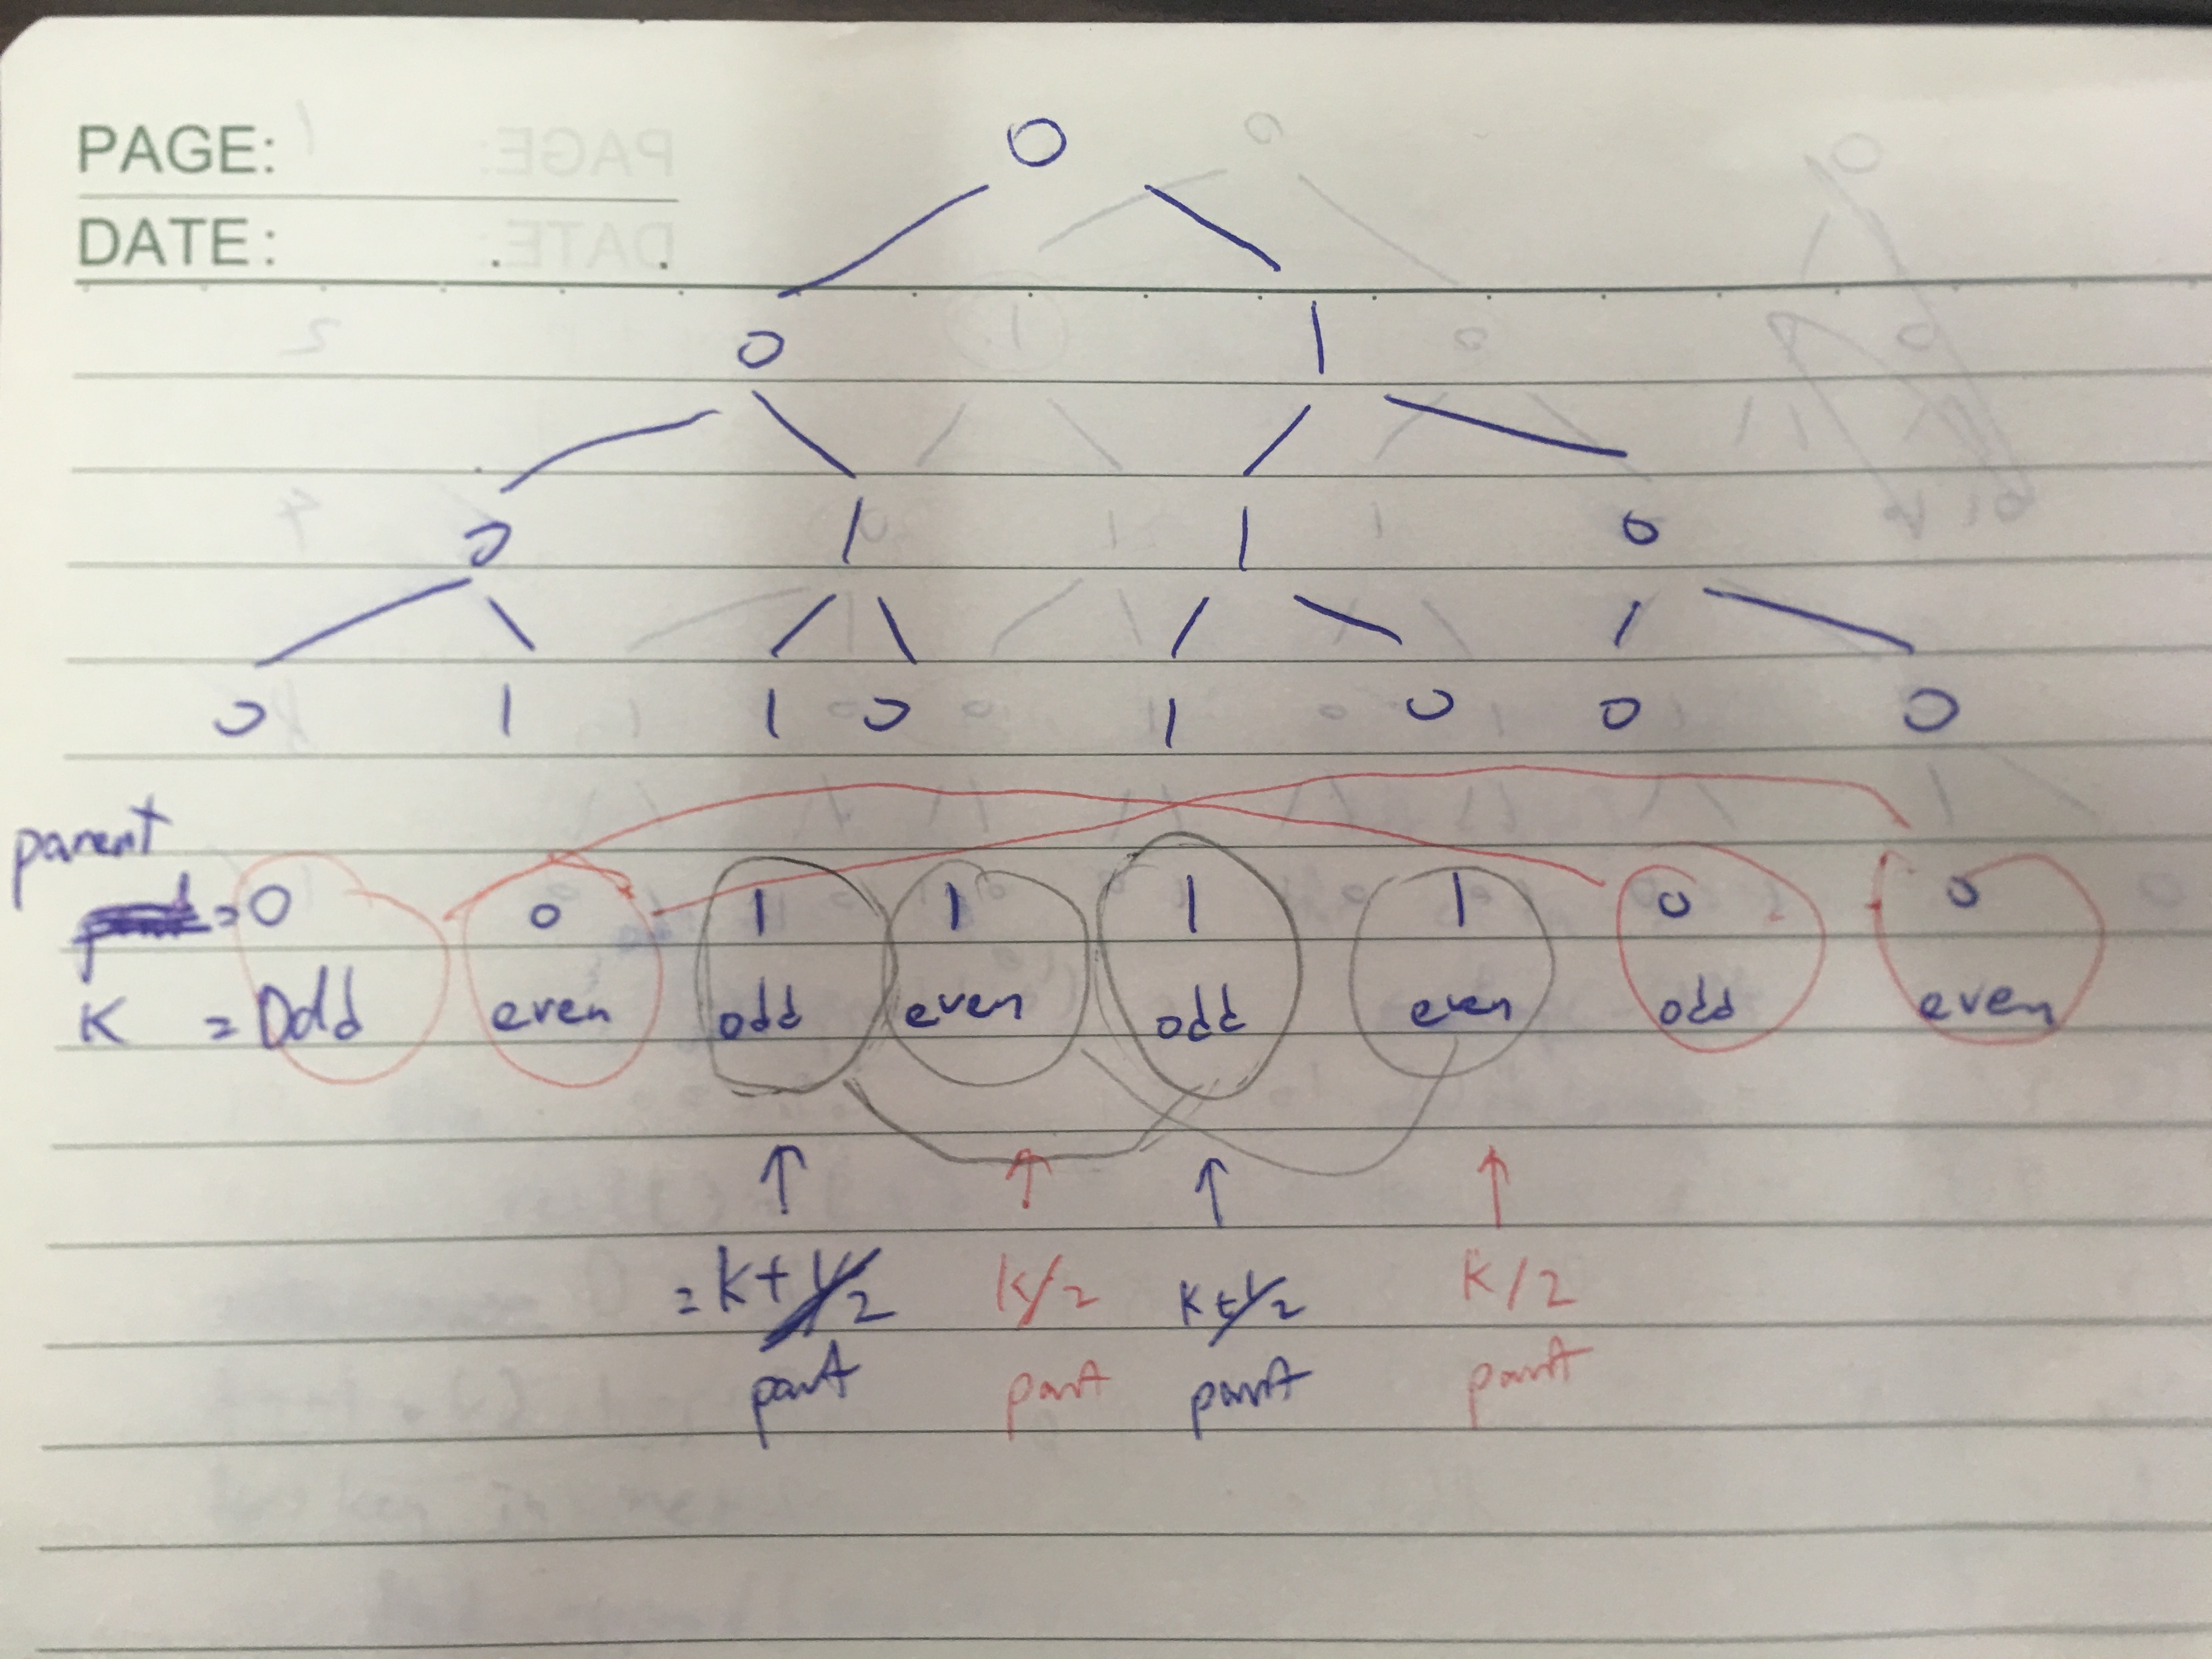 PAGE:
DATE:
0
0 1
0 1 1 0
0 1 1 0 1 0 0 0
parent
= 0 0 1 1 1 1 0 0
K = Odd even odd even odd even odd even
= k+1/2 k/2 k+1/2 K/2
part part part